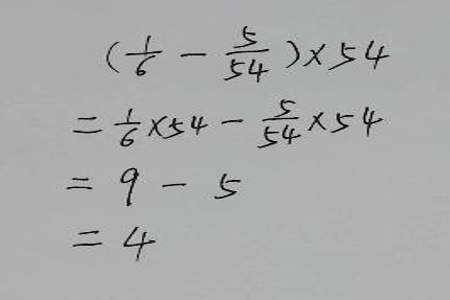 (1/6 - 5/54) × 54
= 1/6 × 54 - 5/54 × 54
= 9 - 5
= 4